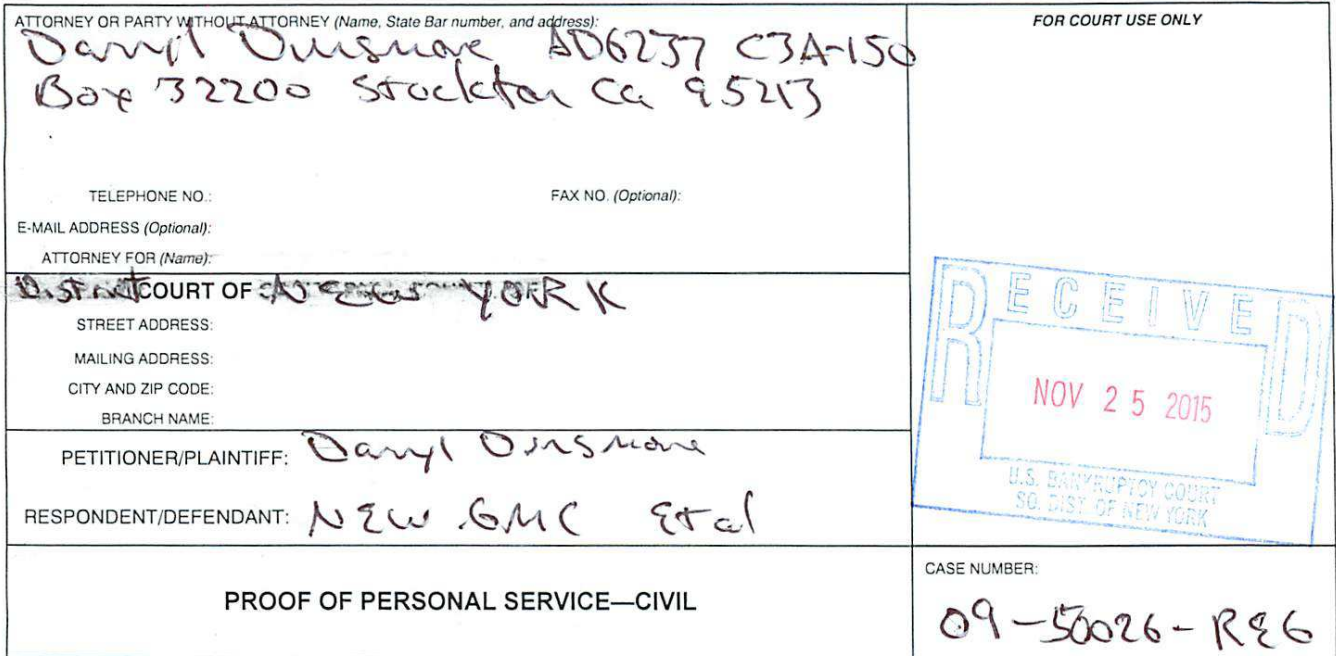 ATTORNEY OR PARTY WITHOUT ATTORNEY (Name, State Bar number, and address):
Daryl Dinsmore AD6237 C3A-150
Box 32200 Stockton Ca 95213
TELEPHONE NO.:
FAX NO. (Optional):
E-MAIL ADDRESS (Optional):
ATTORNEY FOR (Name):
District COURT OF NEW YORK
STREET ADDRESS:
MAILING ADDRESS:
CITY AND ZIP CODE:
BRANCH NAME:
PETITIONER/PLAINTIFF: Daryl Dinsmore
RESPONDENT/DEFENDANT: NEW GMC Etal
PROOF OF PERSONAL SERVICE—CIVIL
FOR COURT USE ONLY
RECEIVED
NOV 25 2015
U.S. BANKRUPTCY COURT
SO. DIST. OF NEW YORK
CASE NUMBER:
09-50026-REG